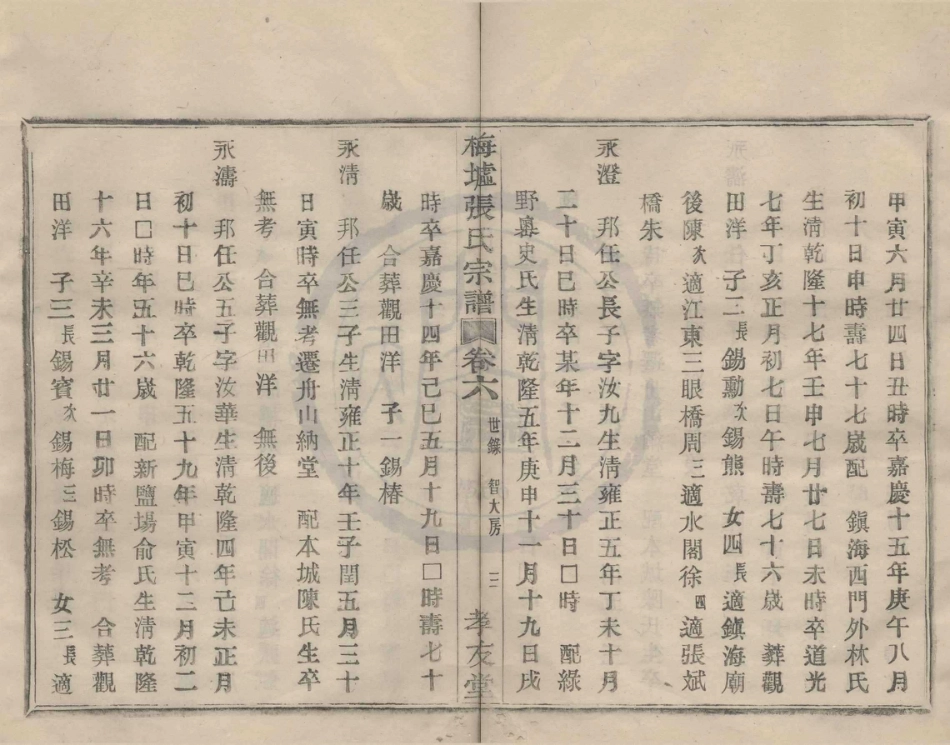 甲寅六月廿四日丑時卒嘉慶十五年庚午八月
初十日申時壽七十七歲配　鎮海西門外林氏
生清乾隆十七年壬申七月廿七日未時卒道光
七年丁亥正月初七日午時壽七十六歲　葬觀
田洋　子二長錫勳次錫熊　女四長適鎮海廟
後陳次適江東三眼橋周三適水閣徐四適張斌
橋朱
永澄　邦任公長子字汝九生清雍正五年丁未十月
二十日巳時卒某年十二月三十日□時　配綠
野嶴史氏生清乾隆五年庚申十一月十九日戌
梅墟張氏宗譜　卷六　世錄　智大房　三　孝友堂
時卒嘉慶十四年己巳五月十九日□時壽七十
歲　合葬觀田洋　子一錫椿
永清　邦任公三子生清雍正十年壬子閏五月三十
日寅時卒無考遷舟山納堂　配本城陳氏生卒
無考　合葬觀田洋　無後
永濤　邦任公五子字汝華生清乾隆四年己未正月
初十日巳時卒乾隆五十九年甲寅十二月初二
日□時年五十六歲　配新鹽場俞氏生清乾隆
十六年辛未三月廿一日卯時卒無考　合葬觀
田洋　子三長錫賓次錫梅三錫松　女三長適